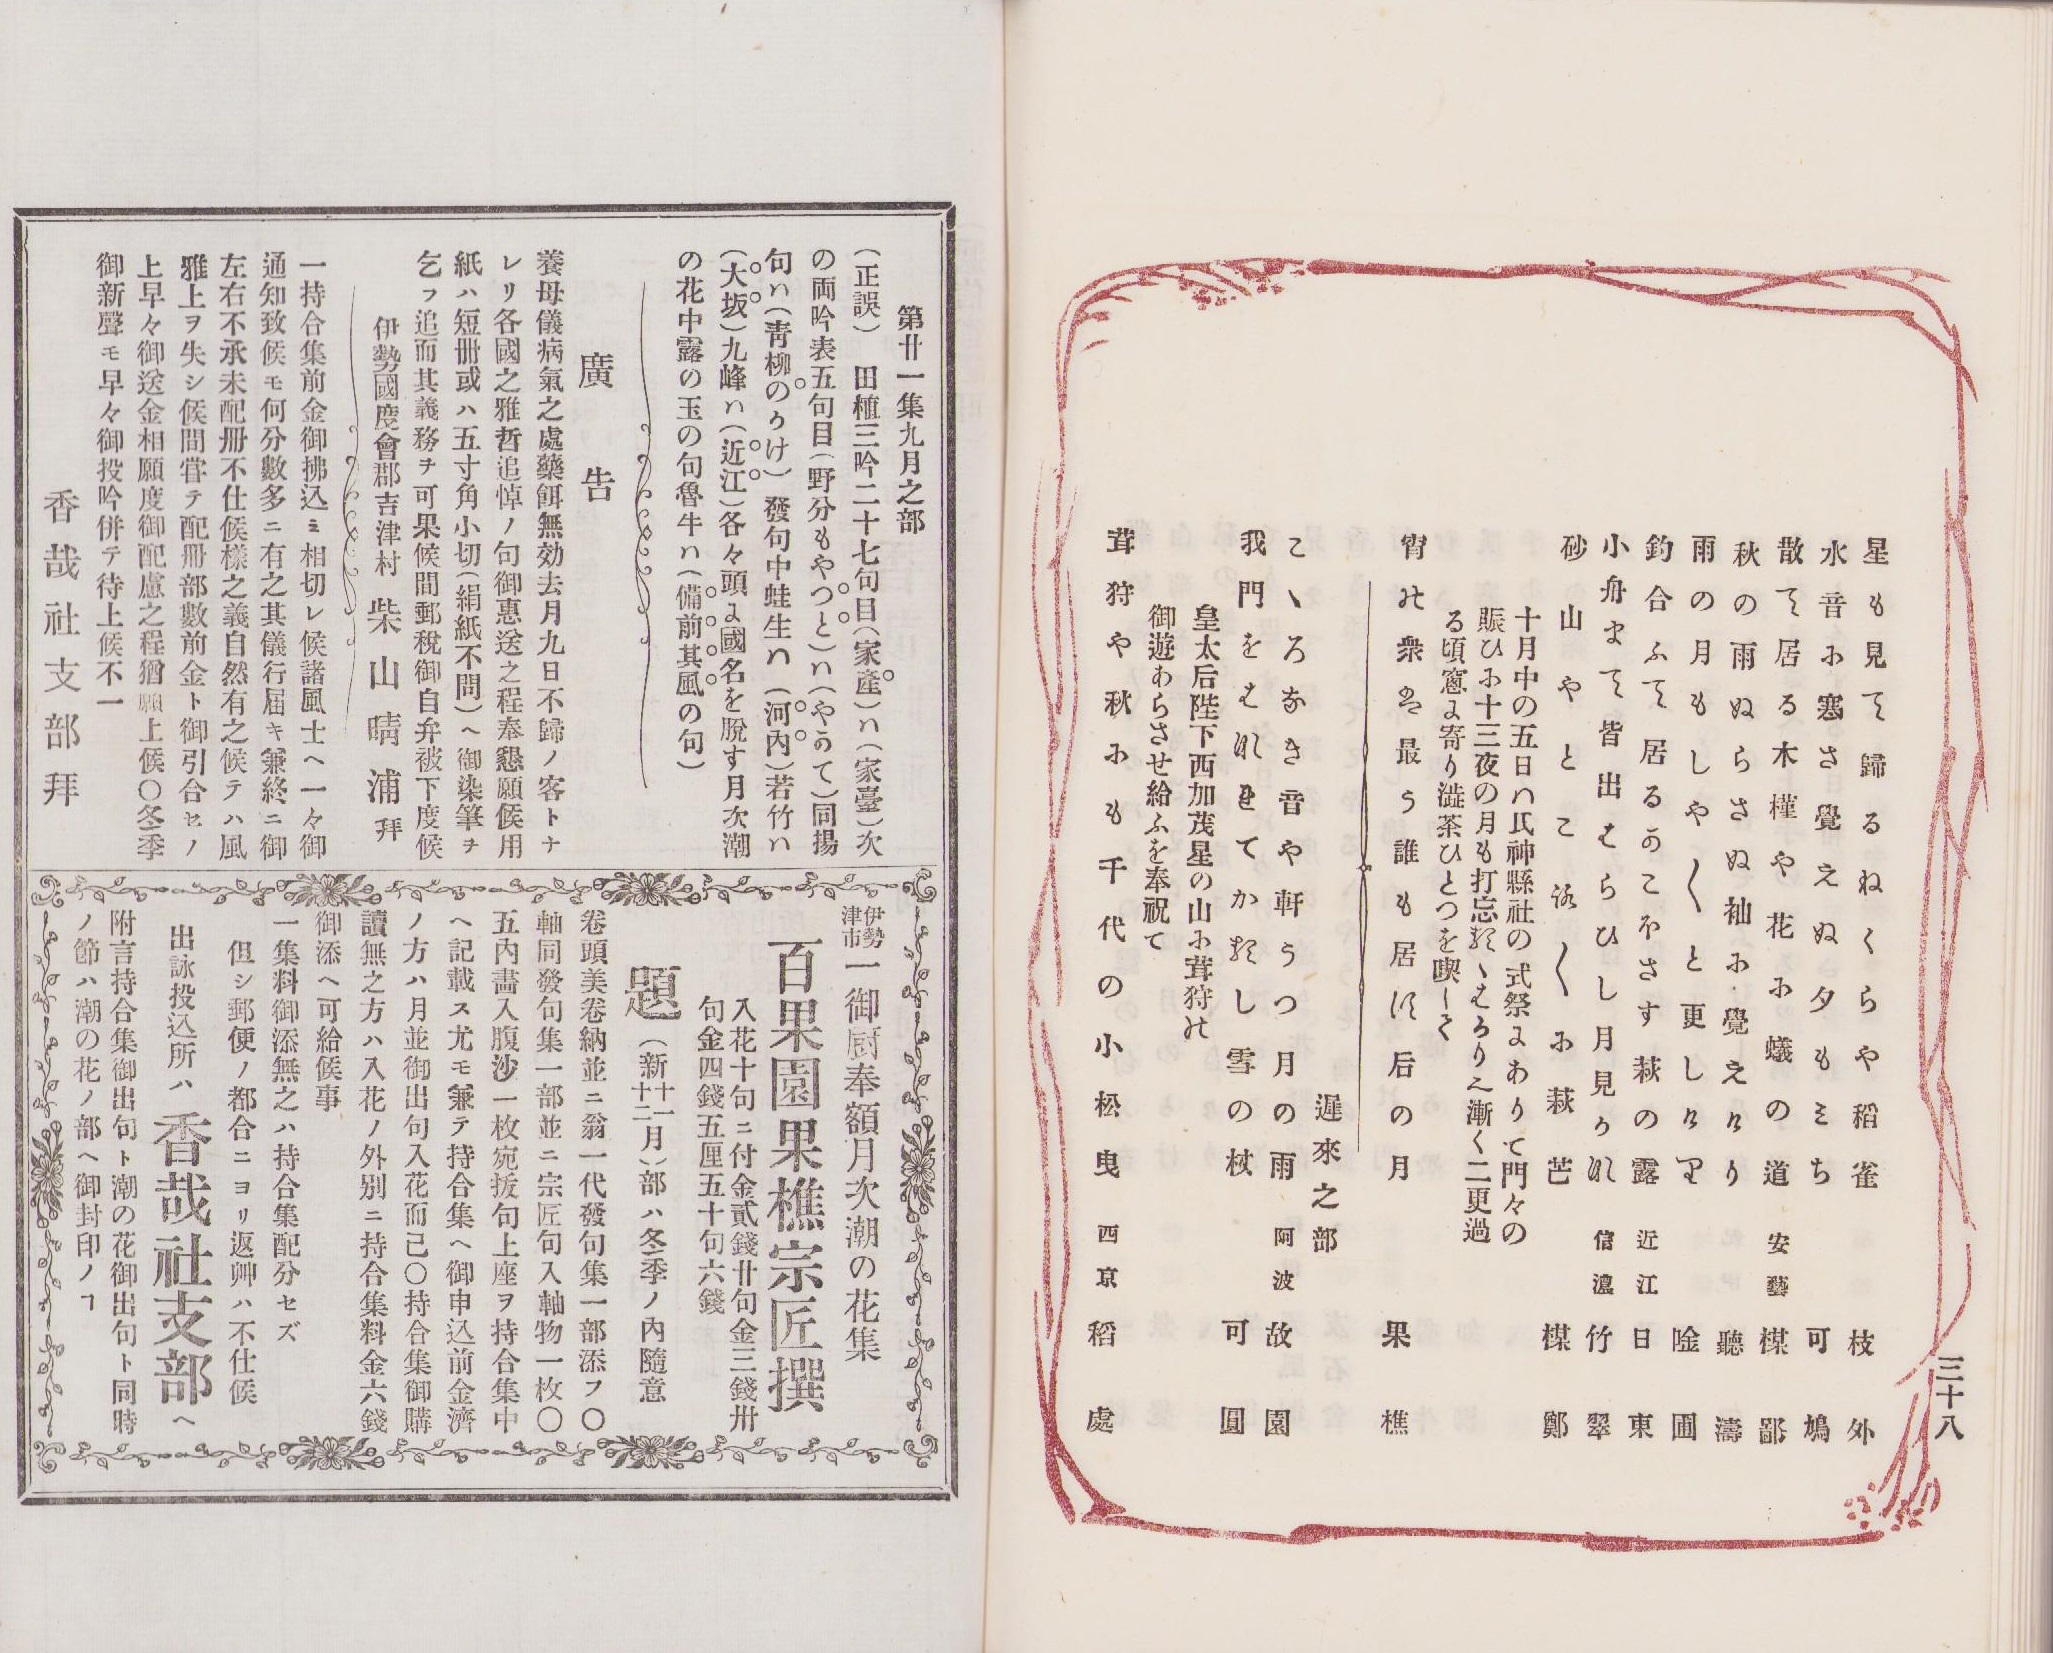 三十八
星も見て歸るねくらや稻雀 枝外
水音に寒さ覺えぬ夕もみち 可鳩
散て居る木槿や花に蟻の道 安藝 楳鄙
秋の雨ぬらさぬ袖に覺えけり 聽濤
雨の月もしや〱と更しけり 圃
釣合ふて居るのこほさす萩の露 近江 日東
小舟まて皆出はらひし月見かな 信濃 竹翠
砂山やところ〱に萩芒 楳鄭
十月中の五日ハ氏神縣社の式祭にありて門々の
賑ひに十三夜の月も打忘れ〻はかりに漸く二更過
る頃窓に寄り澁茶ひとつを喫して
宵の衆は最う誰も居す后の月 果樵
遲來之部
こゝろなき音や軒うつ月の雨 阿波 故園
我門をはなれてかれし雪の杖 可圓
皇太后陛下西加茂星の山に茸狩の
御遊あらさせ給ふを奉祝て
茸狩や秋にも千代の小松曳 西京 稻處
第廿一集九月之部
(正誤) 田植三吟二十七句目(家產)ハ(家臺)次
の両吟表五句目(野分もやつと)ハ(やめて)同揚
句ハ(靑柳のかけ) 發句中蛙生ハ(河內)若竹ハ
(大坂)九峰ハ(近江)各々頭に國名を脫す月次潮
の花中露の玉の句魯牛ハ(備前其風の句)
廣告
養母儀病氣之處藥餌無効去月九日不歸ノ客トナ
レリ各國之雅哲追悼ノ句御惠送之程奉懇願候用
紙ハ短冊或ハ五寸角小切(絹紙不問)ヘ御染筆ヲ
乞フ追而其義務ヲ可果候間郵稅御自弁被下度候
伊勢國度會郡吉津村 柴山晴浦拜
一持合集前金御拂込ミ相切レ候諸風士ヘ一々御
通知致候モ何分數多ニ有之其儀行届キ兼終ニ御
左右不承未配冊不仕候樣之義自然有之候テハ風
雅上ヲ失シ候間甞テ配冊部數前金ト御引合セノ
上早々御送金相願度御配慮之程猶願上候〇冬季
御新聲モ早々御投吟併テ待上候不一
香哉社支部拜
伊勢津市 一御厨奉額月次潮の花集
百果園果樵宗匠撰
入花十句ニ付金貳錢廿句金三錢卅
句金四錢五厘五十句六錢
題 (新十一十二月)部ハ冬季ノ內隨意
卷頭美卷納並ニ翁一代發句集一部添フ〇
軸同發句集一部並ニ宗匠句入軸物一枚〇
五內畵入腹沙一枚宛拔句上座ヲ持合集中
ヘ記載ス尤モ兼テ持合集ヘ御申込前金濟
ノ方ハ月並御出句入花而已〇持合集御購
讀無之方ハ入花ノ外別ニ持合集料金六錢
御添ヘ可給候事
一集料御添無之ハ持合集配分セズ
但シ郵便ノ都合ニヨリ返艸ハ不仕候
出詠投込所ハ 香哉社支部ヘ
附言持合集御出句ト潮の花御出句ト同時
ノ節ハ潮の花ノ部ヘ御封印ノヿ